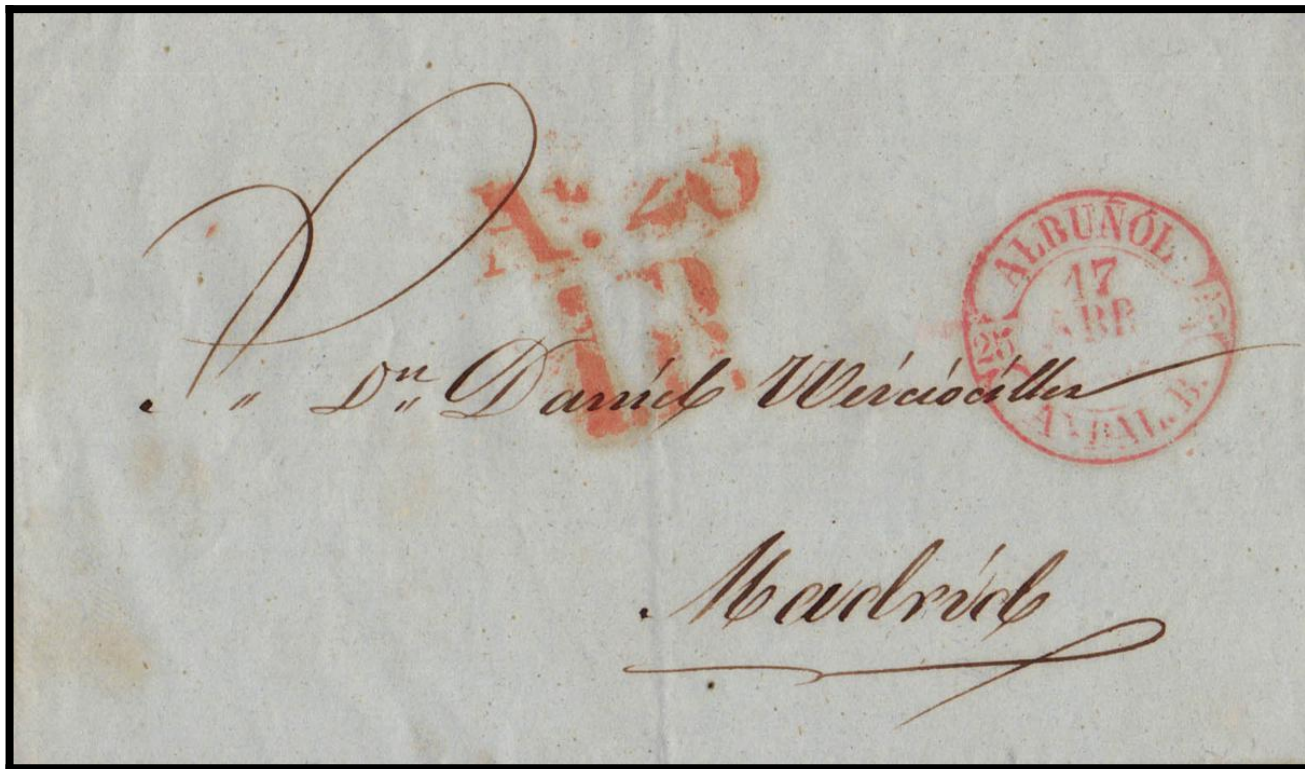 A. 20
ALBUÑOL
17
ABR
25
ANDAL. B.
Dn Daniel Weisweiller
Madrid